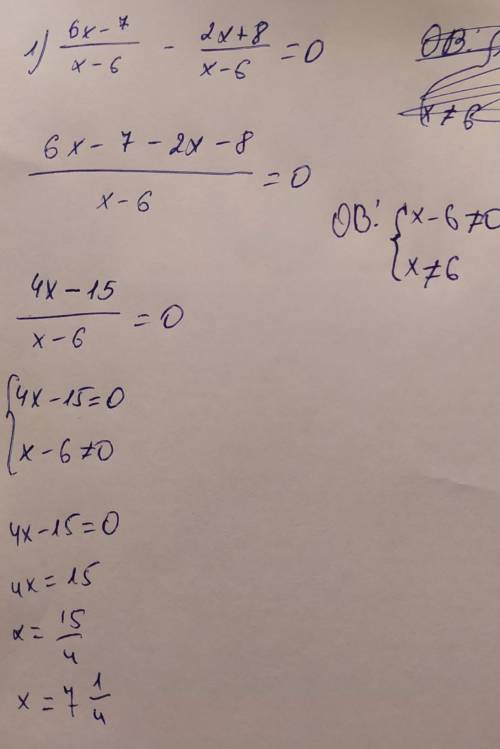 1) (6x-7)/(x-6) - (2x+8)/(x-6) = 0
ОВ:
x≠6
(6x-7-2x-8)/(x-6) = 0
ОВ: { x-6≠0
x≠6
(4x-15)/(x-6) = 0
{ 4x-15=0
x-6≠0
4x-15=0
4x=15
x= 15/4
x = 7 1/4